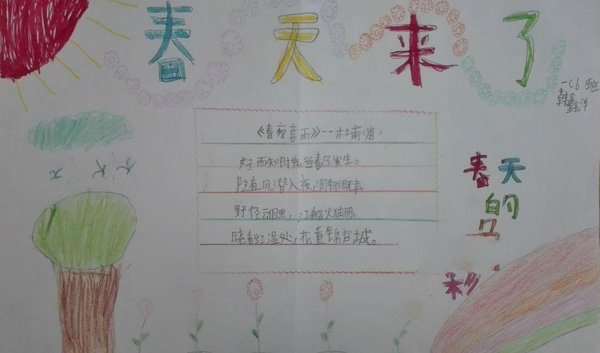 春天来了
《春夜喜雨》--杜甫(唐)
好雨知时节,当春乃发生。
随风潜入夜,润物细无声。
野径云俱黑,江船火独明。
晓看红湿处,花重锦官城。
春天的
秒